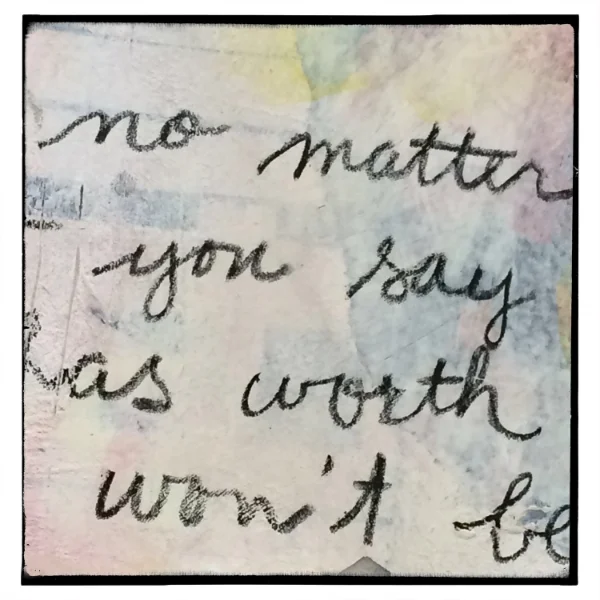 no matter
you say
as worth
won't be